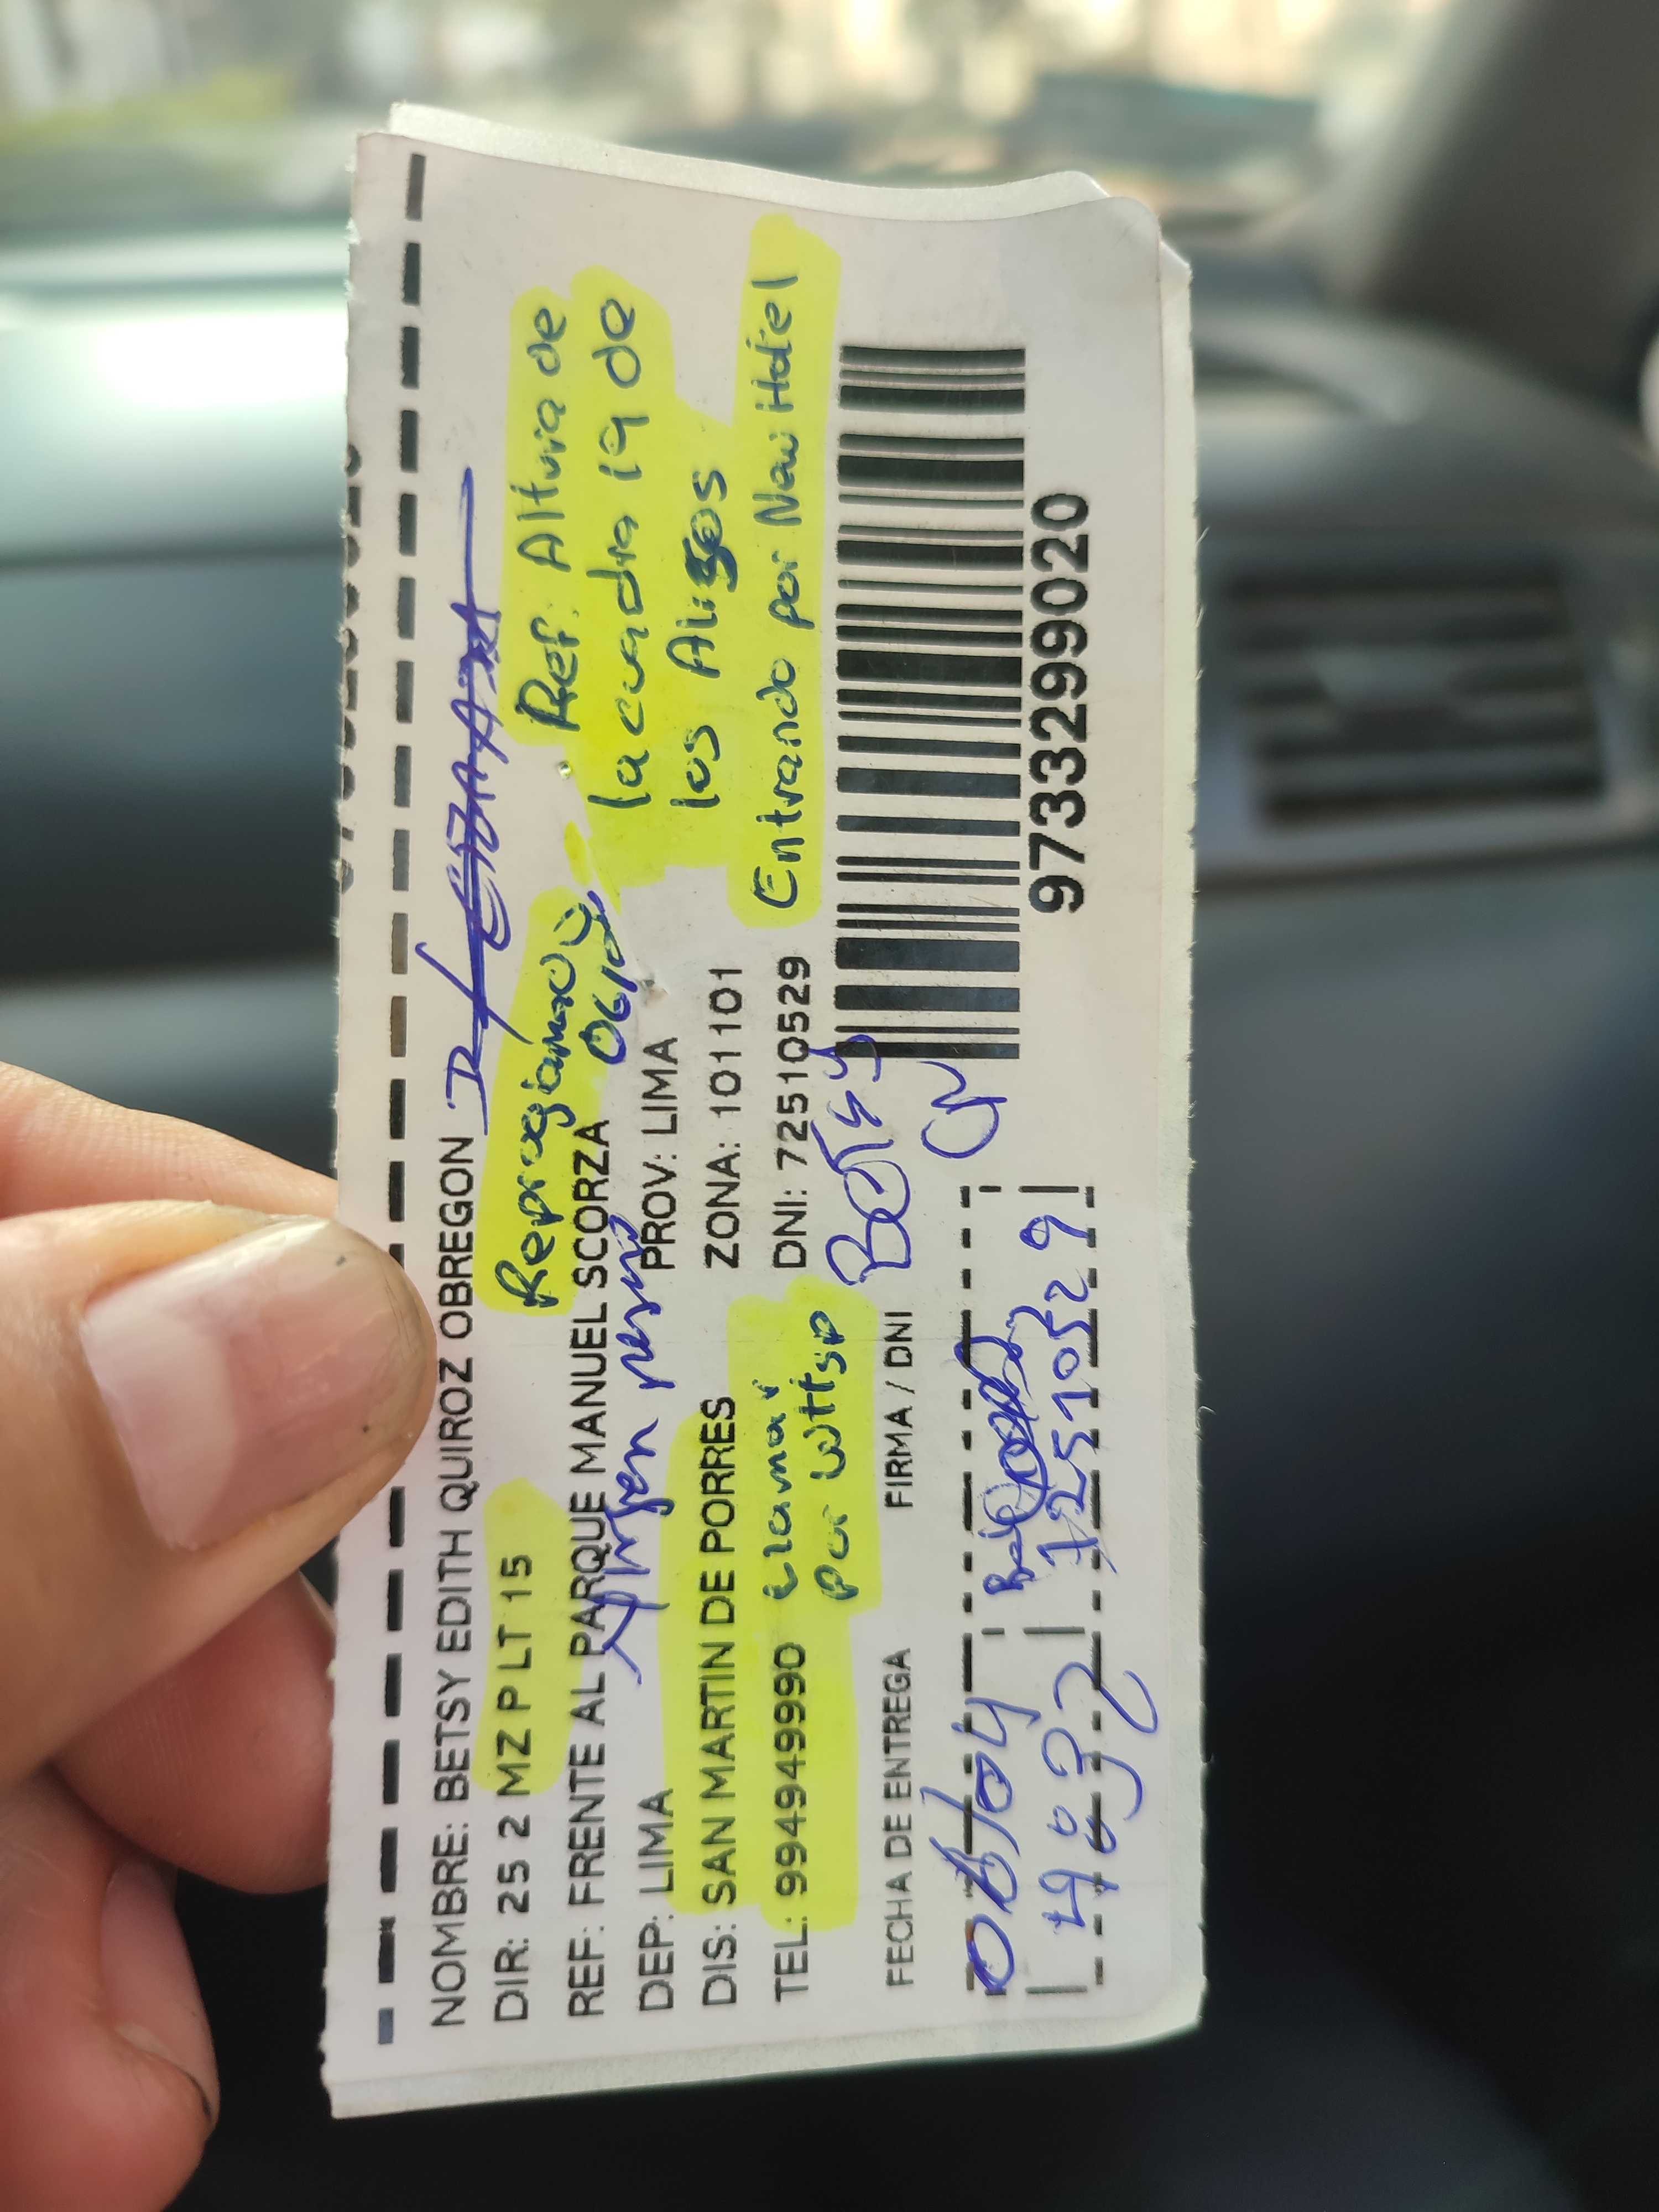 NOMBRE: BETSY EDITH QUIROZ OBREGON
DIR: 25 2 MZ P LT 15
REF: FRENTE AL PARQUE MANUEL SCORZA
DEP: LIMA PROV: LIMA
DIS: SAN MARTIN DE PORRES ZONA: 101101
TEL: 994949990 DNI: 72510529
Llamar
Por Wttsp
Ref: Altura de
la cuadra 19 de
los Alisos
Entrando por New Hotel
FECHA DE ENTREGA FIRMA / DNI
Betsy
72510529
973329902​0